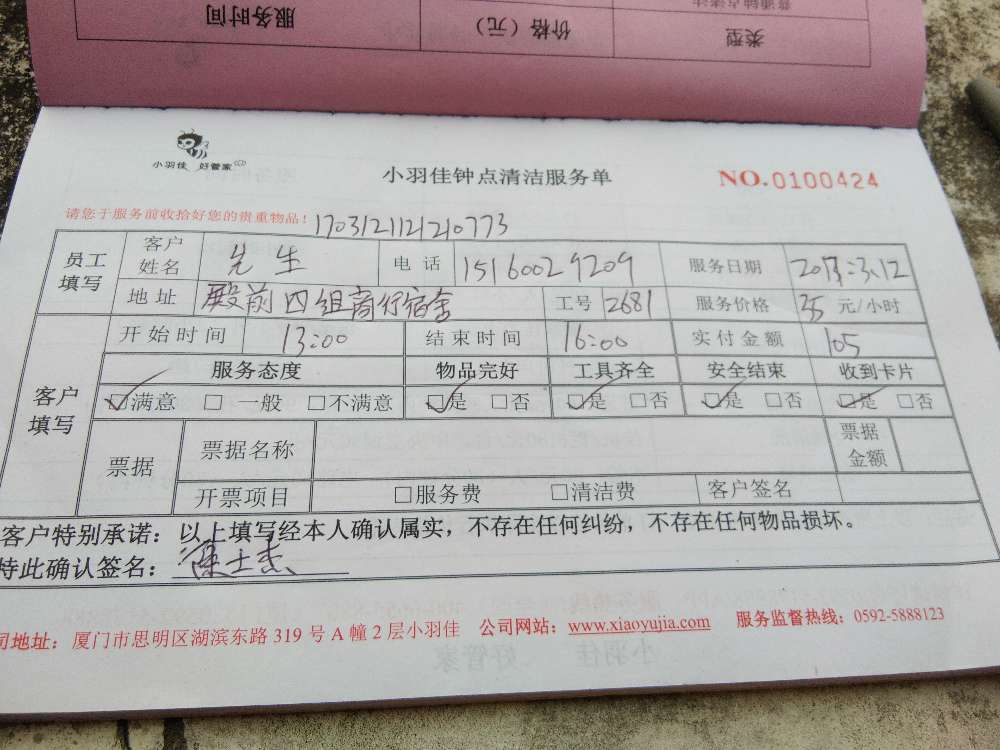 服务时间 价格（元） 类型
小羽佳 好管家
小羽佳钟点清洁服务单
NO.0100424
请您于服务前收拾好您的贵重物品！
170312112121077​3
员工填写 客户姓名 先生 电话 15160029209 服务日期 2017.3.12
地址 殿前四组商行宿舍 工号 2681 服务价格 35 元/小时
客户填写 开始时间 13:00 结束时间 16:00 实付金额 105
服务态度 物品完好 工具齐全 安全结束 收到卡片
☑满意 □一般 □不满意 ☑是 □否 ☑是 □否 ☑是 □否 ☑是 □否
票据 票据名称 票据金额
开票项目 □服务费 □清洁费 客户签名
客户特别承诺：以上填写经本人确认属实，不存在任何纠纷，不存在任何物品损坏。
特此确认签名：陈士杰
司地址：厦门市思明区湖滨东路 319 号 A 幢 2 层小羽佳 公司网站：www.xiaoyujia.com 服务监督热线：0592-5888123